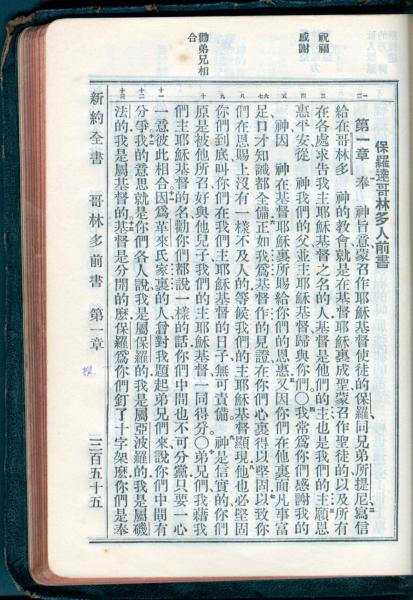 祝福
感謝
勸弟兄相
合
保羅達哥林多人前書
第一章 奉 神旨意蒙召作耶穌基督使徒的保羅同兄弟所提尼寫信
給在哥林多 神的教會就是在基督耶穌裏成聖蒙召作聖徒的以及所有
在各處求告我主耶穌基督之名的人基督是他們的主也是我們的主願恩
惠平安從 神我們的父並主耶穌基督歸與你們〇我常爲你們感謝我的
神因 神在基督耶穌裏所賜給你們的恩惠又因你們在他裏面凡事富
足口才知識都全備正如我爲基督作的見證在你們心裏得以堅固以致你
們在恩賜上沒有一樣不及人的等候我們的主耶穌基督顯現他也必堅固
你們到底叫你們在我們主耶穌基督的日子無可責備 神是信實的你們
原是被他所召好與他兒子我們的主耶穌基督一同得分〇弟兄們我藉我
們主耶穌基督的名勸你們都說一樣的話你們中間也不可分黨只要一心
一意彼此相合因爲革來氏家裏的人曾對我題起弟兄們來說你們中間有
分爭我的意思就是你們各人說我是屬保羅的我是屬亞波羅的我是屬磯
法的我是屬基督的基督是分開的麼保羅爲你們釘了十字架麼你們是奉
新約全書 哥林多前書 第一章 三百五十五